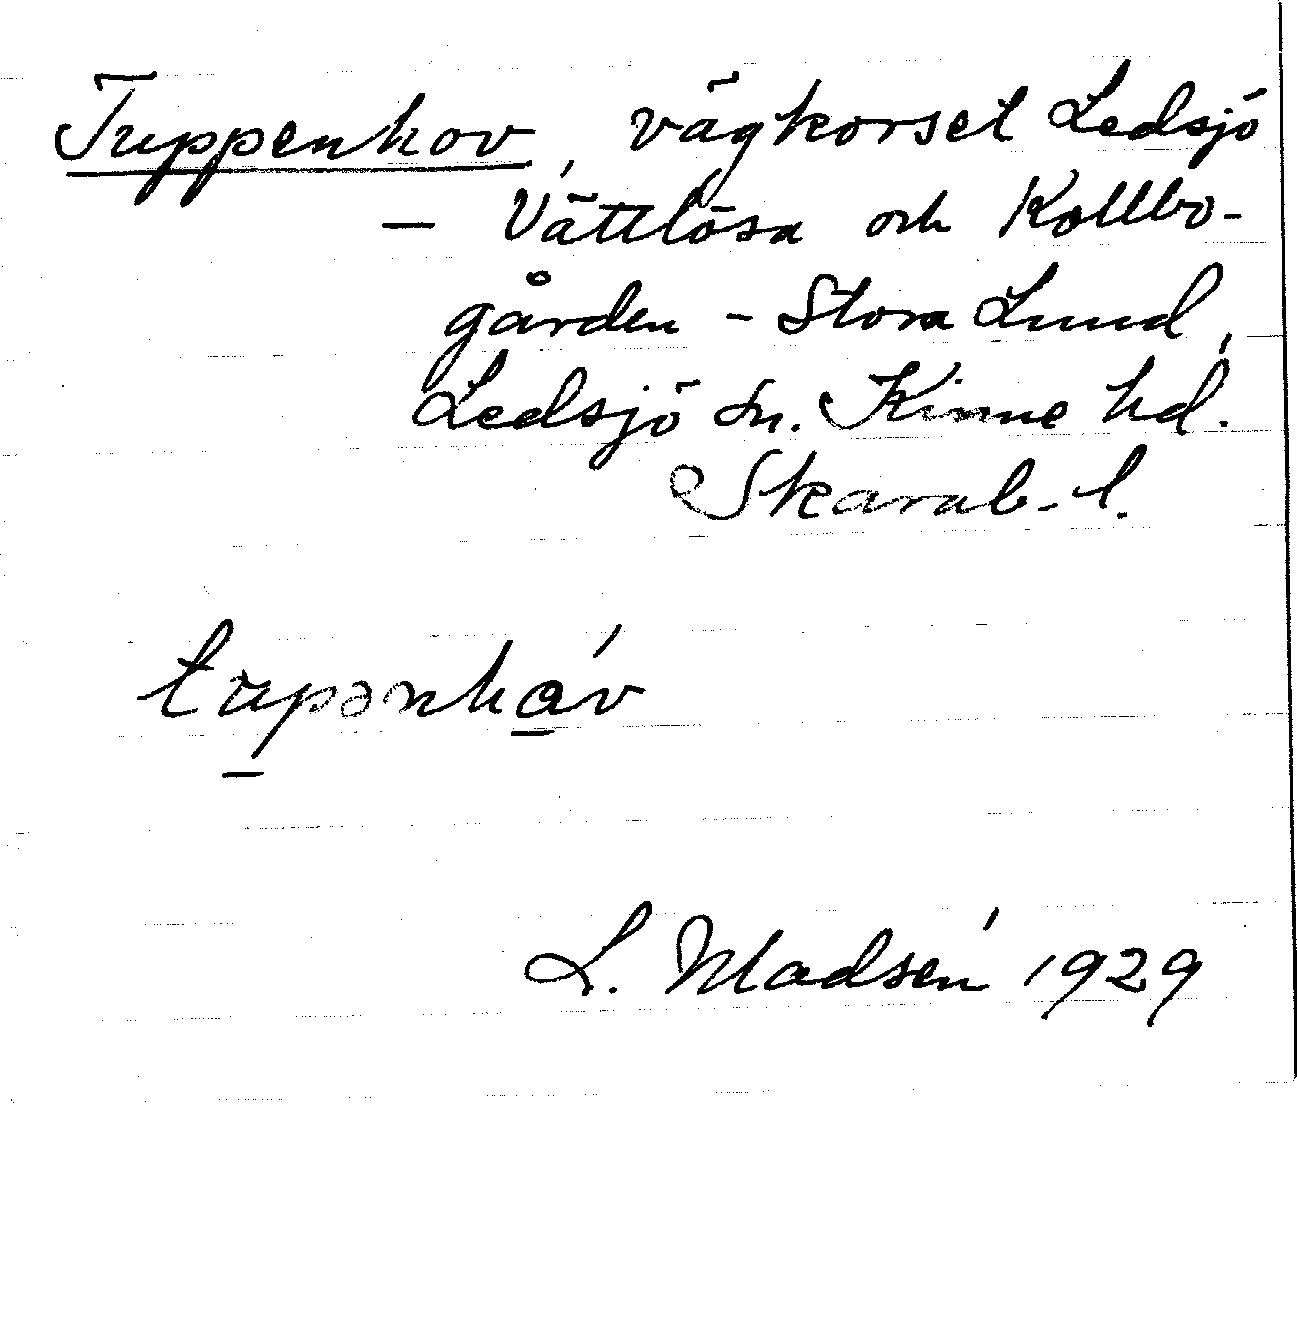 Tuppenhov, vägkorset Ledsjö
– Vättlösa och Kollbo-
gården – Stora Lund,
Ledsjö sn. Kinne hd.
Skarab. l.
tupənháv
L. Madsén 1929